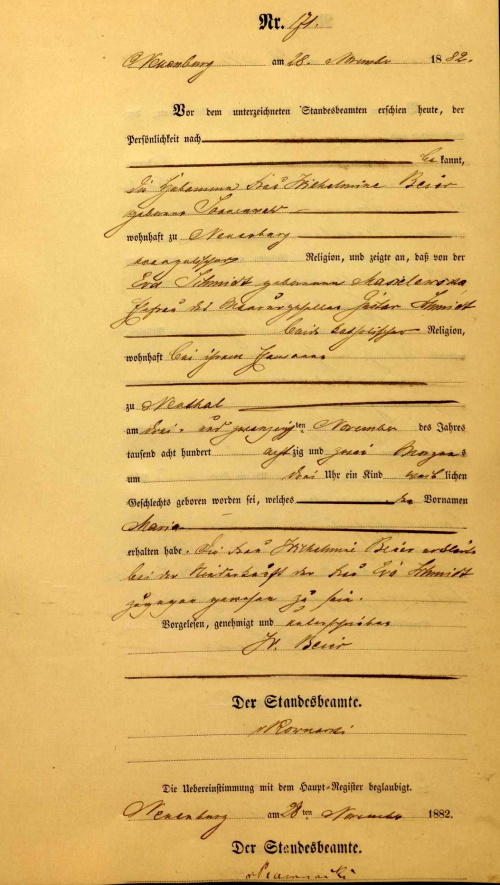 Nr. 171.
Neuenburg am 28. November 1882.
Vor dem unterzeichneten Standesbeamten erschien heute, der
Persönlichkeit nach
be kannt,
die Hebamme Frau Wilhelmine Beier
geborene
wohnhaft zu Neuenburg
evangelischer Religion, und zeigte an, daß von der
Eva Schmidt geborenen
Ehefrau des Maurergesellen Gustav Schmidt
beide katholischer Religion,
wohnhaft bei ihrem Ehemanne
zu Neuthal
am drei und zwanzigsten November des Jahres
tausend acht hundert achtzig und zwei Morgens
um drei Uhr ein Kind weiblichen
Geschlechts geboren worden sei, welches den Vornamen
Maria
erhalten habe. Die Frau Wilhelmine Beier erklärte
bei der Niederkunft der Frau Eva Schmidt
zugegen gewesen zu sein.
Vorgelesen, genehmigt und unterschrieben
W. Beier
Der Standesbeamte.
Die Uebereinstimmung mit dem Haupt-Register beglaubigt.
Neuenburg am 28ten November 1882.
Der Standesbeamte.